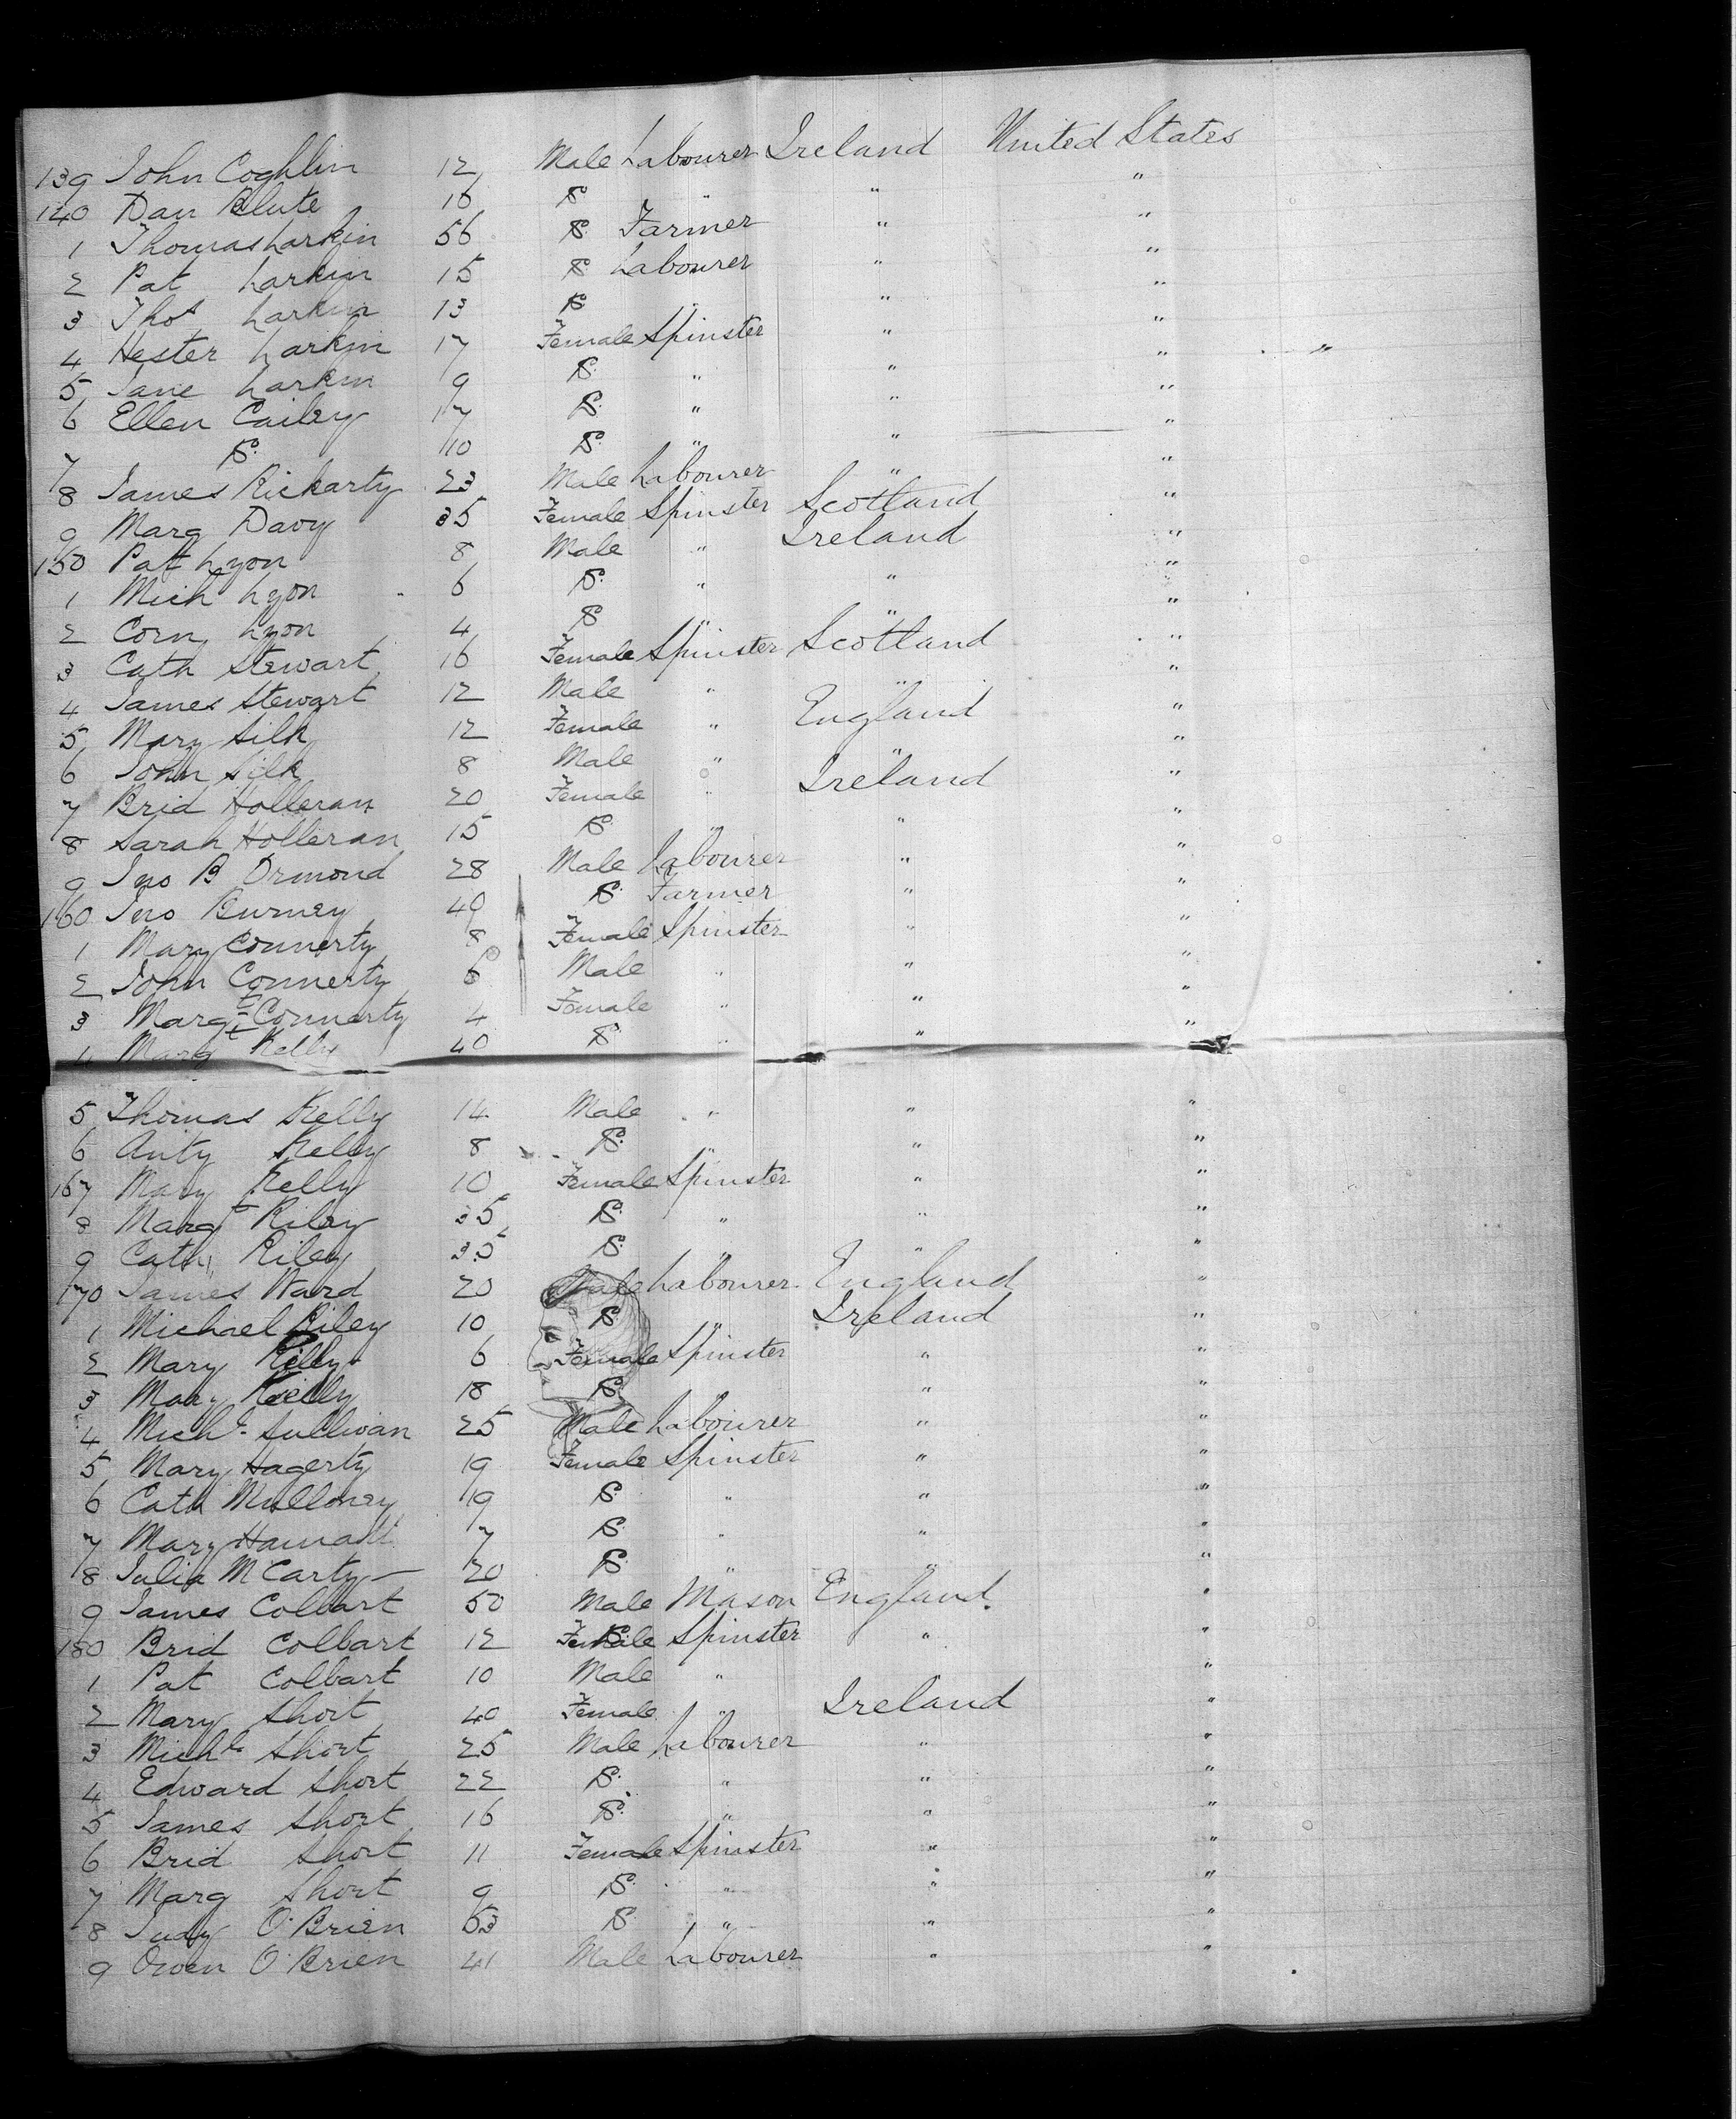 139 John Coghlin 12 Male Labourer Ireland United States
140 Dan Blute 16 Do " " "
1 Thomas Larkin 56 Do Farmer " "
2 Pat Larkin 15 Do Labourer " "
3 Thos Larkin 13 Do " "
4 Hester Larkin 17 Female Spinster " "
5 Jane Larkin 9 Do " " "
6 Ellen Cailey 17 Do " " "
7 Do 10 Do " " "
8 James Rickarty 23 Male Labourer " "
9 Marg Davy 35 Female Spinster Scotland "
150 Pat Lyon 8 Male " Ireland "
1 Mich Lyon 6 Do " " "
2 Corn Lyon 4 Do " " "
3 Cath Stewart 16 Female Spinster Scotland "
4 James Stewart 12 Male " " "
5 Mary Silk 12 Female " England "
6 John Silk 8 Male " " "
7 Brid Holleran 20 Female " Ireland "
8 Sarah Holleran 15 Do " " "
9 Jno B Ormond 28 Male Labourer " "
160 Jno Burney 49 Do Farmer " "
1 Mary Connerty 8 Female Spinster " "
2 John Connerty 6 Male " " "
3 Margt Connerty 4 Female " " "
4 Margt Kelly 40 Do " " "
5 Thomas Kelly 14 Male " " "
6 Anty Kelly 8 Do " " "
167 Mary Kelly 10 Female Spinster " "
8 Margt Riley 35 Do " " "
9 Cath Riley 35 Do " " "
170 James Ward 20 Male Labourer England "
1 Michael Riley 10 Do " Ireland "
2 Mary Rilly 6 Female Spinster " "
3 Mary Reilly 18 Do " "
4 Michl Sullivan 25 Male Labourer " "
5 Mary Hagerty 19 Female Spinster " "
6 Cath Mulloney 19 Do " " "
7 Mary 7 Do " " "
8 Julia McCarty 20 Do " " "
9 James Colbart 50 Male Mason England "
180 Brid Colbart 12 Female Spinster " "
1 Pat Colbart 10 Male " "
2 Mary Short 40 Female " Ireland "
3 Michl Short 25 Male Labourer " "
4 Edward Short 22 Do " " "
5 James Short 16 Do " " "
6 Brid Short 11 Female Spinster " "
7 Marg Short 9 Do " " "
8 Judy O'Brien 53 Do " " "
9 Owen O'Brien 41 Male Labourer " "